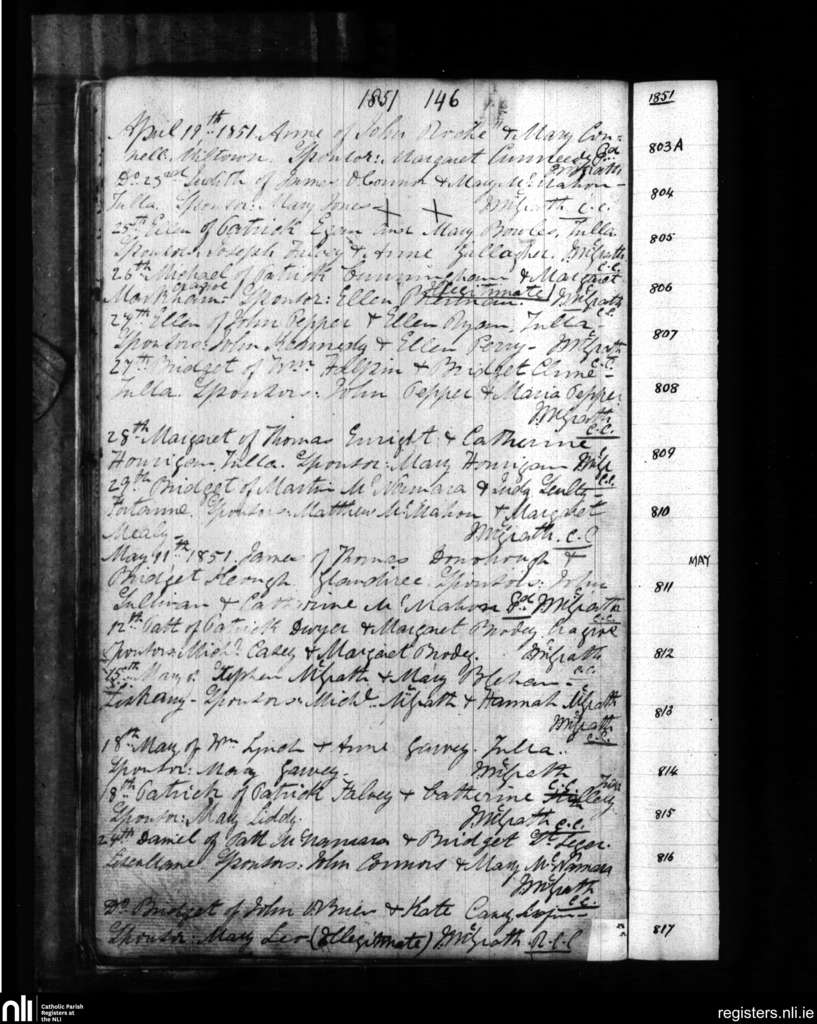 1851 146
1851
April 19th 1851. Anne of John Roche & Mary Con=
nell. Miltown. Sponsor: Margaret Cunneedy Gd.
McGrath
803A
Do. 23rd Judith of James O'Connor & Mary McMahon -
Tulla. Sponsor: Mary Jones McGrath C.C.
804
25th Ellen of Patrick Egan and Mary Bowles, Tulla
Sponsors: Joseph & Anne Gallagher. McGrath
C.C.
805
26th Michael of Patrick Cunningham & Margaret
Markham. Cragroe Sponsor: Ellen Illegitimate McGrath
C.C.
806
27th Ellen of John Pepper & Ellen Ryan. Tulla -
Sponsors: John Kennedy & Ellen Perry - McGrath
C.C.
807
27th Bridget of Wm. Halpin & Bridget Clune -
Tulla. Sponsors: John Pepper & Maria Pepper
McGrath
C.C.
808
28th Margaret of Thomas Enright & Catherine
Hourigan Tulla. Sponsor: Mary Hourigan McG
C.C.
809
29th Bridget of Martin McNamara & Judy
Fortanne. Sponsors: Matthew McMahon & Margaret
Mealy - McGrath. C.C
810
MAY
May 11th 1851. James of Thomas Donohough &
Bridget Keough Glandree Sponsors: John
Sullivan & Catherine McMahon Gd. McGrath
C.C.
811
12th Patt of Patrick Dwyer & Margaret Brody Cragroe
Sponsors: Michl. Casey & Margaret Brody. McGrath
C.C.
812
15th Mary of Stephen McGrath & Mary Blehan -
Liskany - Sponsors: Michl. McGrath & Hannah McGrath
McGrath
C.C.
813
18th Mary of Wm. Lynch & Anne Garvey. Tulla.
Sponsor: Mary Garvey. McGrath
C.C.
814
18th Patrick of Patrick Falvey & Catherine
Sponsor: Mary Liddy. McGrath C.C.
815
24th Daniel of Patt McNamara & Bridget
Sponsors: John Connors & Mary McNamara
McGrath
C.C.
816
Do. Bridget of John O'Brien & Kate Carey
Sponsor: Mary Leo (Illegitimate) McGrath R.C.C
817
nli Catholic Parish
Registers at
the NLI
registers.nli.ie